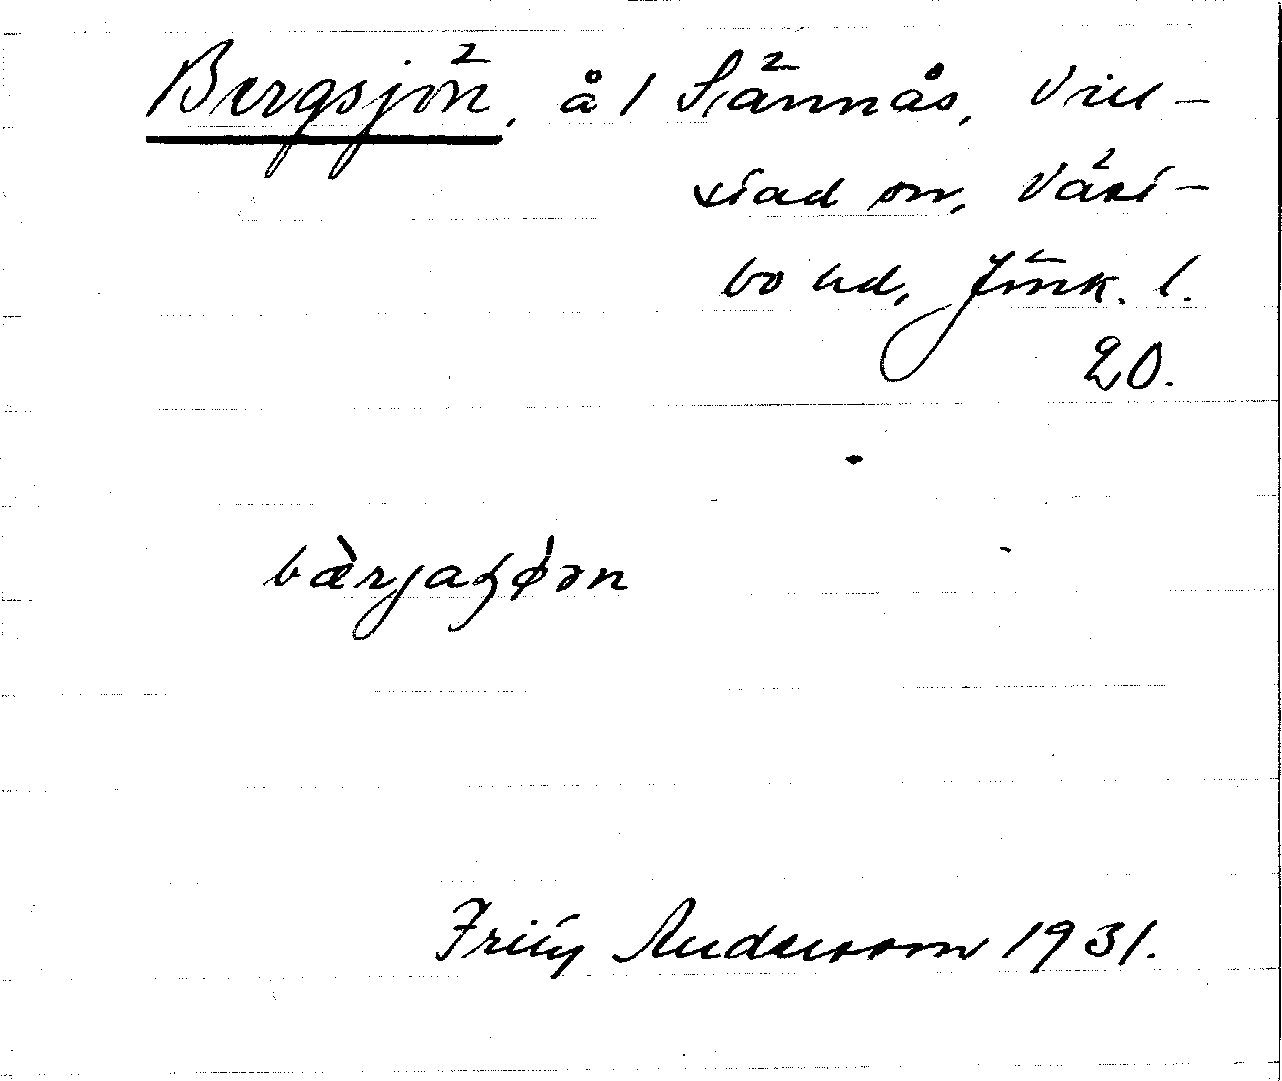 Bergsjön, å 1 Sännås, Vill-
stad sn, Väst-
bo hd, Jönk. l.
20.
bærjaʂøən
Andersson 1931.